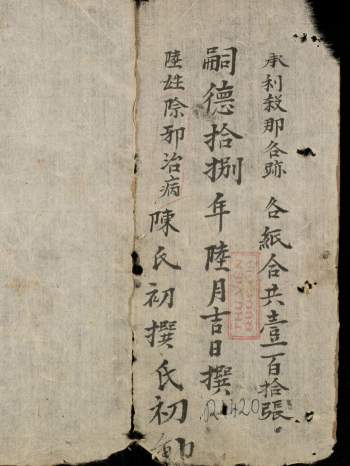 承利殺那各跡各紙合共壹百拾張
嗣德拾捌年陸月吉日撰
陸姓除邪治病陳氏初撰氏初
THƯ VIỆN